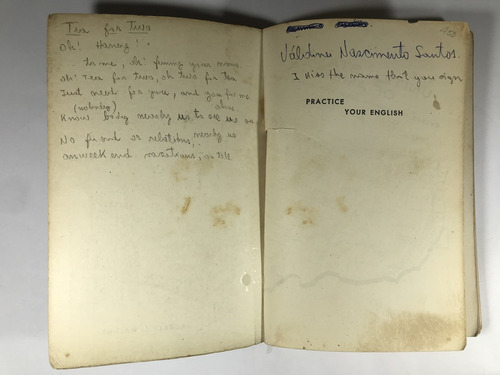 Tea for Two
Oh! Honey!
to me, oh! funny your nows.
oh! Tea for twos, oh two for Tea
Just need for you, and you for me
(nobody) alone
Know body nearby us to see us or
No friend or relations, nearby us
on week end vacations,
Váldine Nascimento Santos.
I Kiss the name that you sign
PRACTICE
YOUR ENGLISH